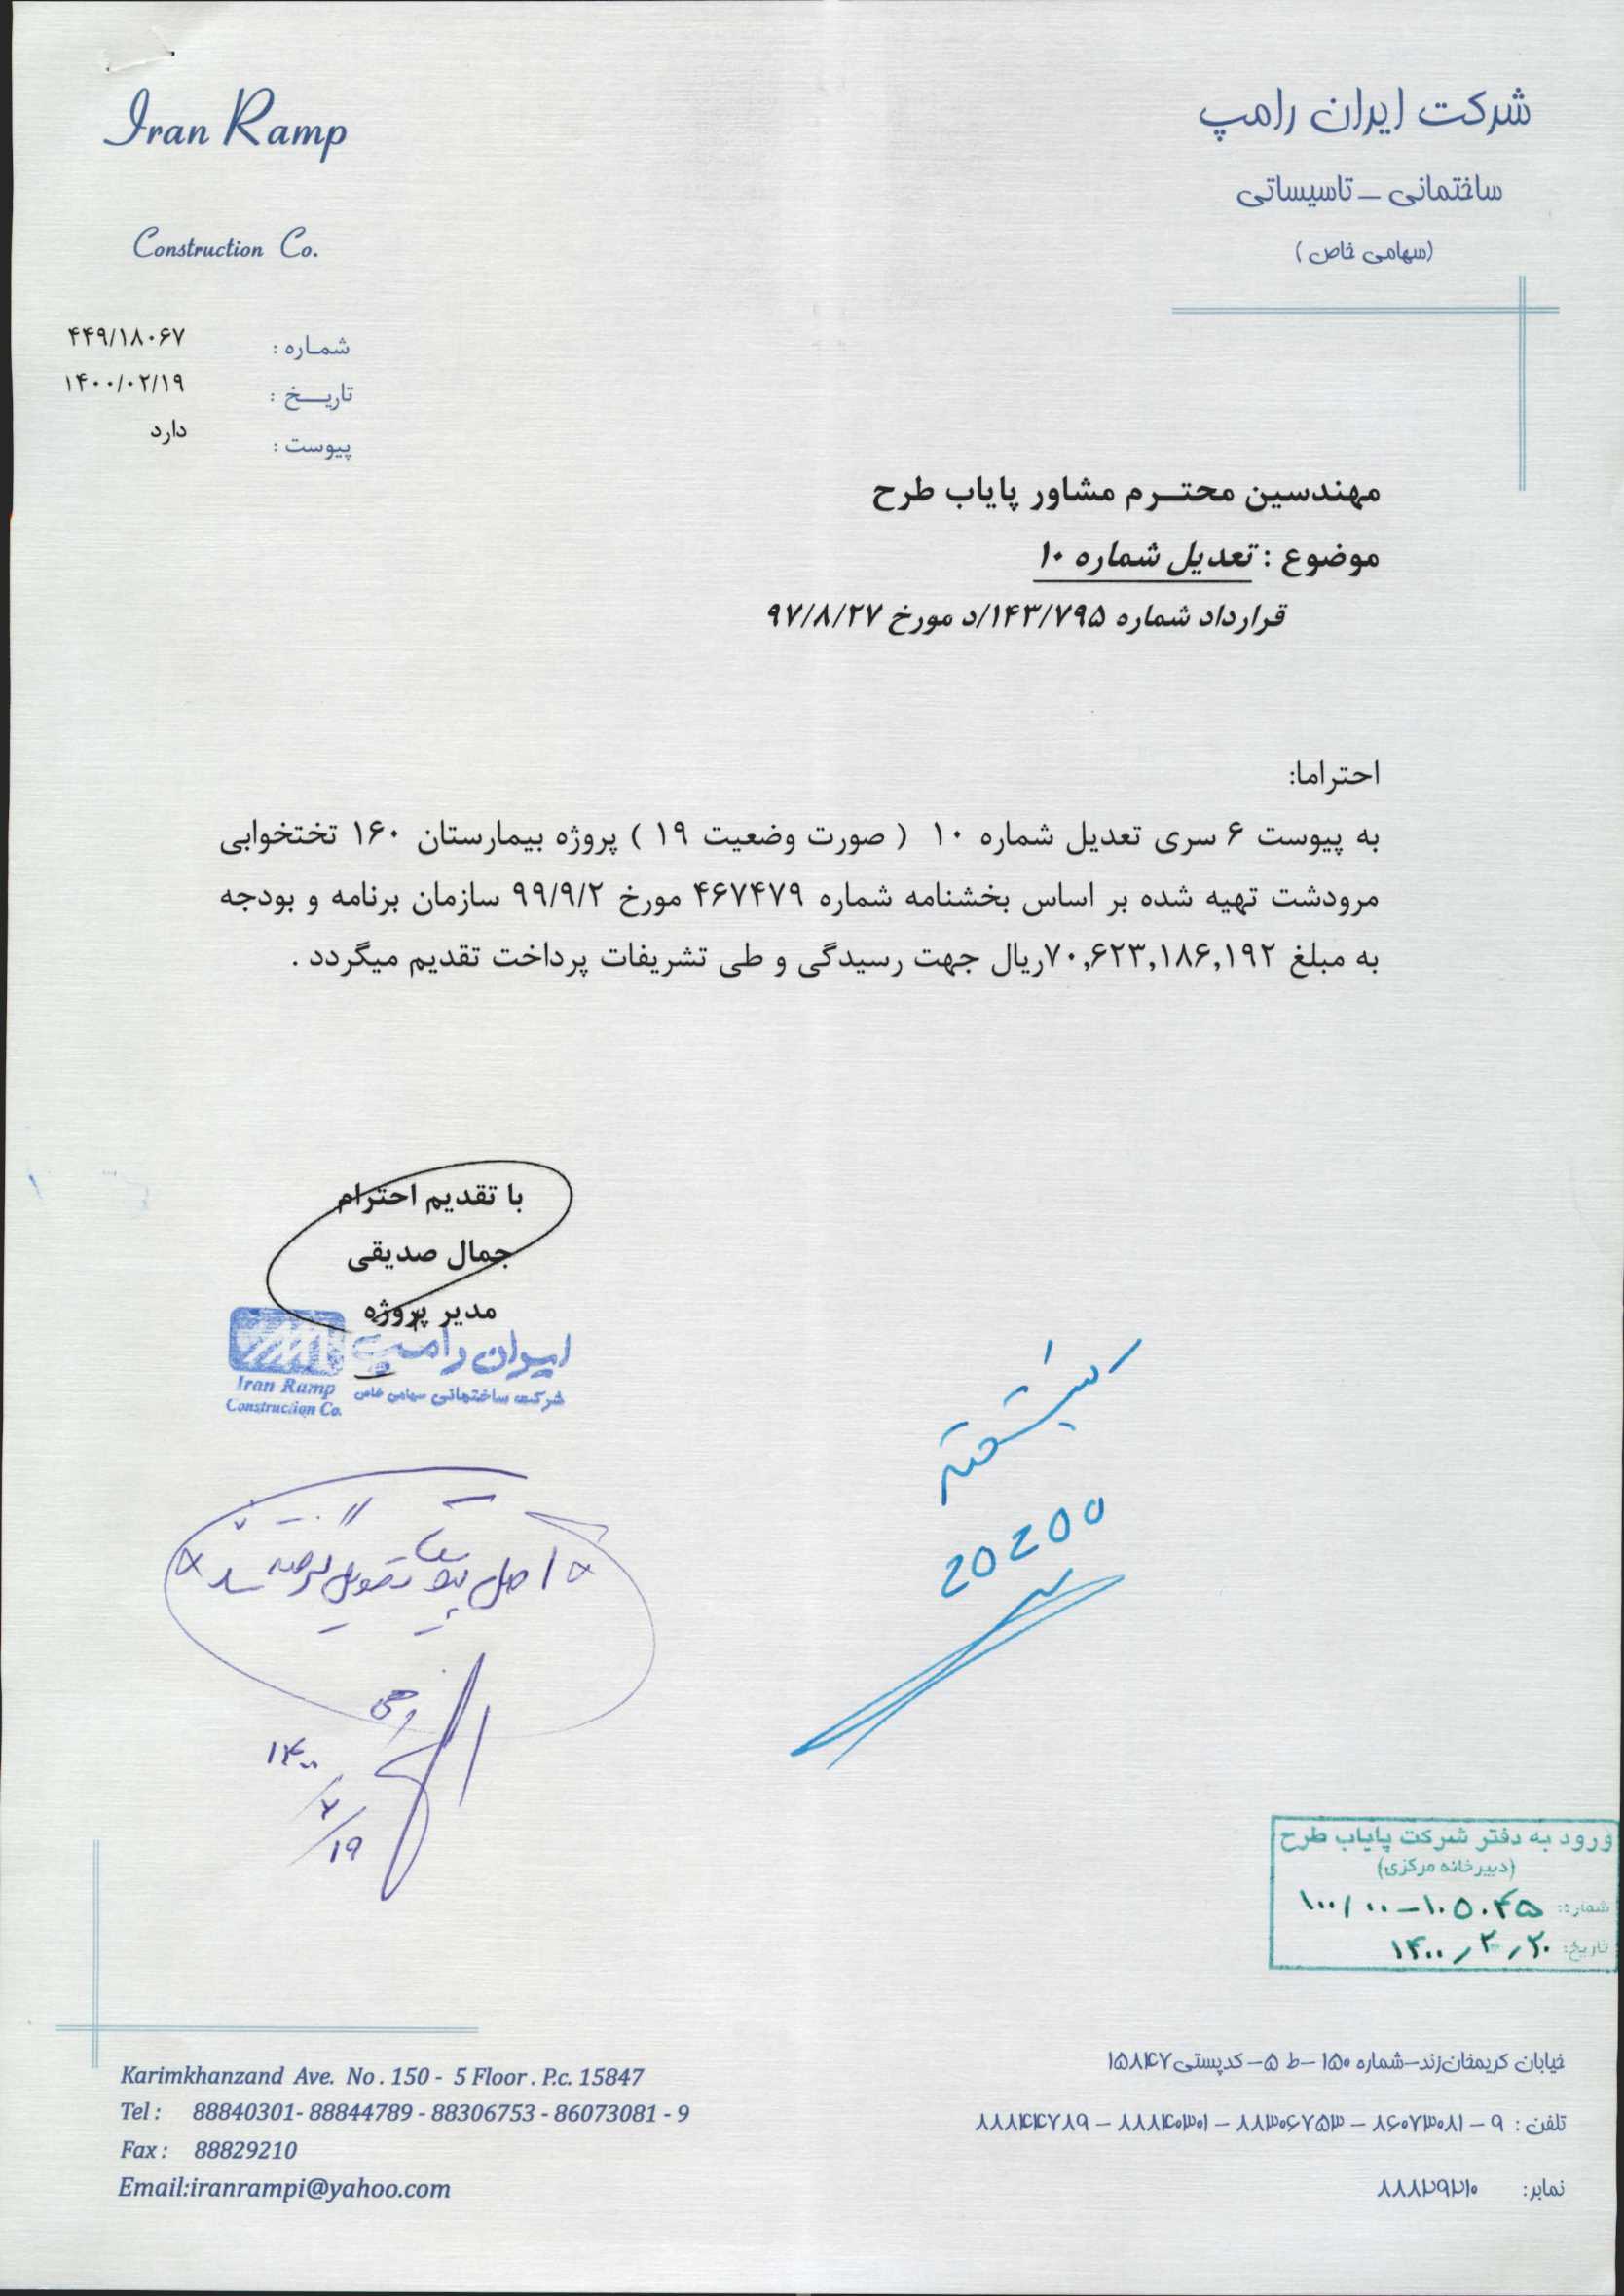 Iran Ramp
Construction Co.
شرکت ایران رامپ
ساختمانی – تاسیساتی
(سهامی خاص)
شماره : ۴۴۹/۱۸۰۶۷
تاریخ : ۱۴۰۰/۰۲/۱۹
پیوست : دارد
مهندسین محترم مشاور پایاب طرح
موضوع : تعدیل شماره ۱۰
قرارداد شماره ۱۴۳/۷۹۵/د مورخ ۹۷/۸/۲۷
احتراما:
به پیوست ۶ سری تعدیل شماره ۱۰ ( صورت وضعیت ۱۹ ) پروژه بیمارستان ۱۶۰ تختخوابی
مرودشت تهیه شده بر اساس بخشنامه شماره ۴۶۷۴۷۹ مورخ ۹۹/۹/۲ سازمان برنامه و بودجه
به مبلغ ۷۰,۶۲۳,۱۸۶,۱۹۲ریال جهت رسیدگی و طی تشریفات پرداخت تقدیم میگردد .
با تقدیم احترام
جمال صدیقی
مدیر پروژه
ایران رامپ
شرکت ساختمانی سهامی خاص
Iran Ramp
Construction Co.
20200
اصل تحویل گرفته شد
۱۴۰۰/۲/۱۹
ورود به دفتر شرکت پایاب طرح
(دبیرخانه مرکزی)
شماره: ۱۰۰/۰۰-۱۰۵۰۴۵
تاریخ: ۱۴۰۰/۲/۲۰
Karimkhanzand Ave. No . 150 - 5 Floor . P.c. 15847
Tel : 88840301- 88844789 - 88306753 - 86073081 - 9
Fax : 88829210
Email:iranrampi@yahoo.com
خیابان کریمخان زند–شماره ۱۵۰–ط ۵–کدپستی ۱۵۸۴۷
تلفن : ۹ – ۸۶۰۷۳۰۸۱ – ۸۸۳۰۶۷۵۳ – ۸۸۸۴۰۳۰۱ – ۸۸۸۴۴۷۸۹
نمابر: ۸۸۸۲۹۲۱۰